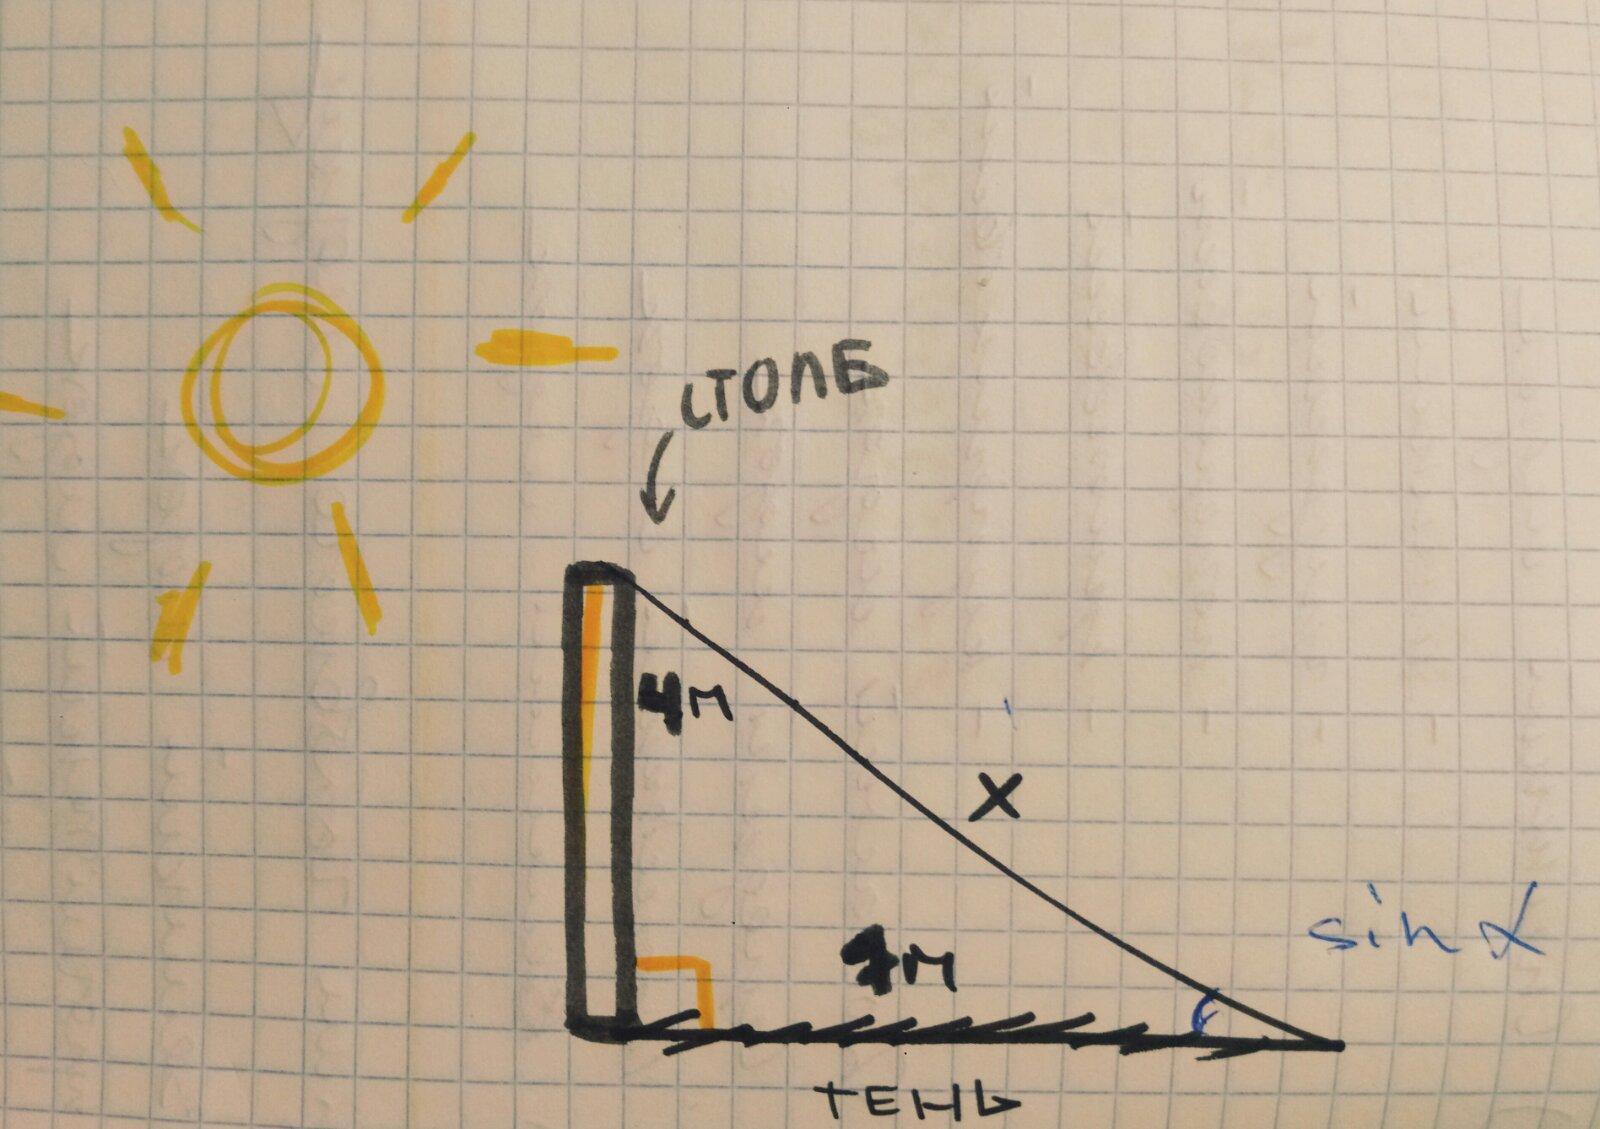 СТОЛБ
4м
x
sin α
7м
ТЕНЬ